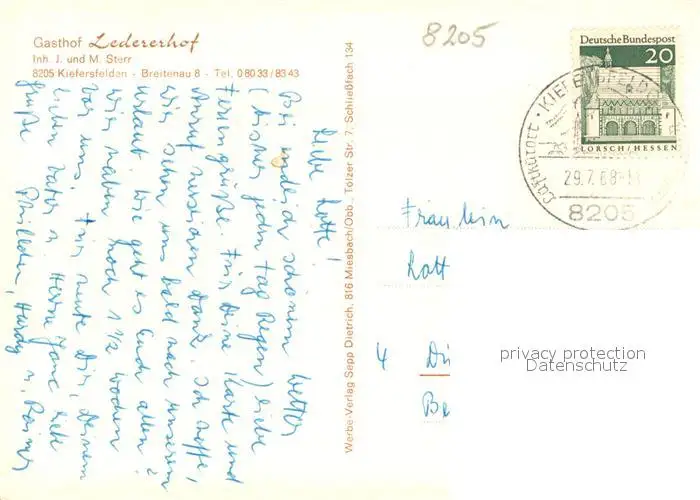 Gasthof Ledererhof
Inh. J. und M. Sterr
8205 Kiefersfelden - Breitenau 8 - Tel. 0 80 33 / 83 43
8205
Deutsche Bundespost
20
LORSCH / HESSEN
LUFTKURORT · KIEFERSFELDEN
29.7.68
8205
Liebe Lotte!
Bei schönem Wetter
(bisher jeden Tag Regen) liebe
Feriengrüße. Für Deine Karte und
Anruf Dank. Ich hoffe,
wir sehn uns bald nach unserem
Urlaub. Wie geht es Euch allen?
Wir haben noch 1 1/2 Wochen
vor uns. Für heute Dir, Deinem
lieben Vater u. ganz liebe
Grüße
Werbe-Verlag Sepp Dietrich, 816 Miesbach/Obb., Tölzer Str. 7, Schließfach 134
Fräulein
Lott
4 Dü
Be
privacy protection
Datenschutz